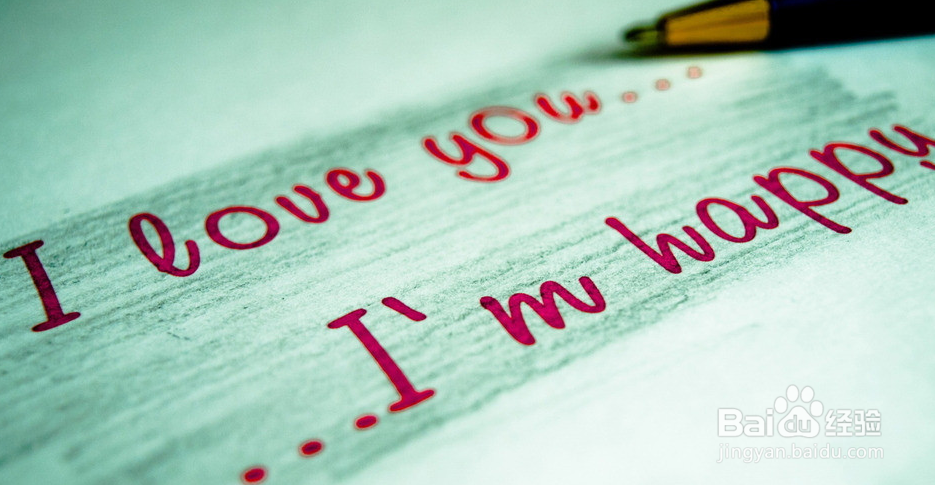 I love you...
...I`m happy
Baidu 经验
jingyan.baidu.com